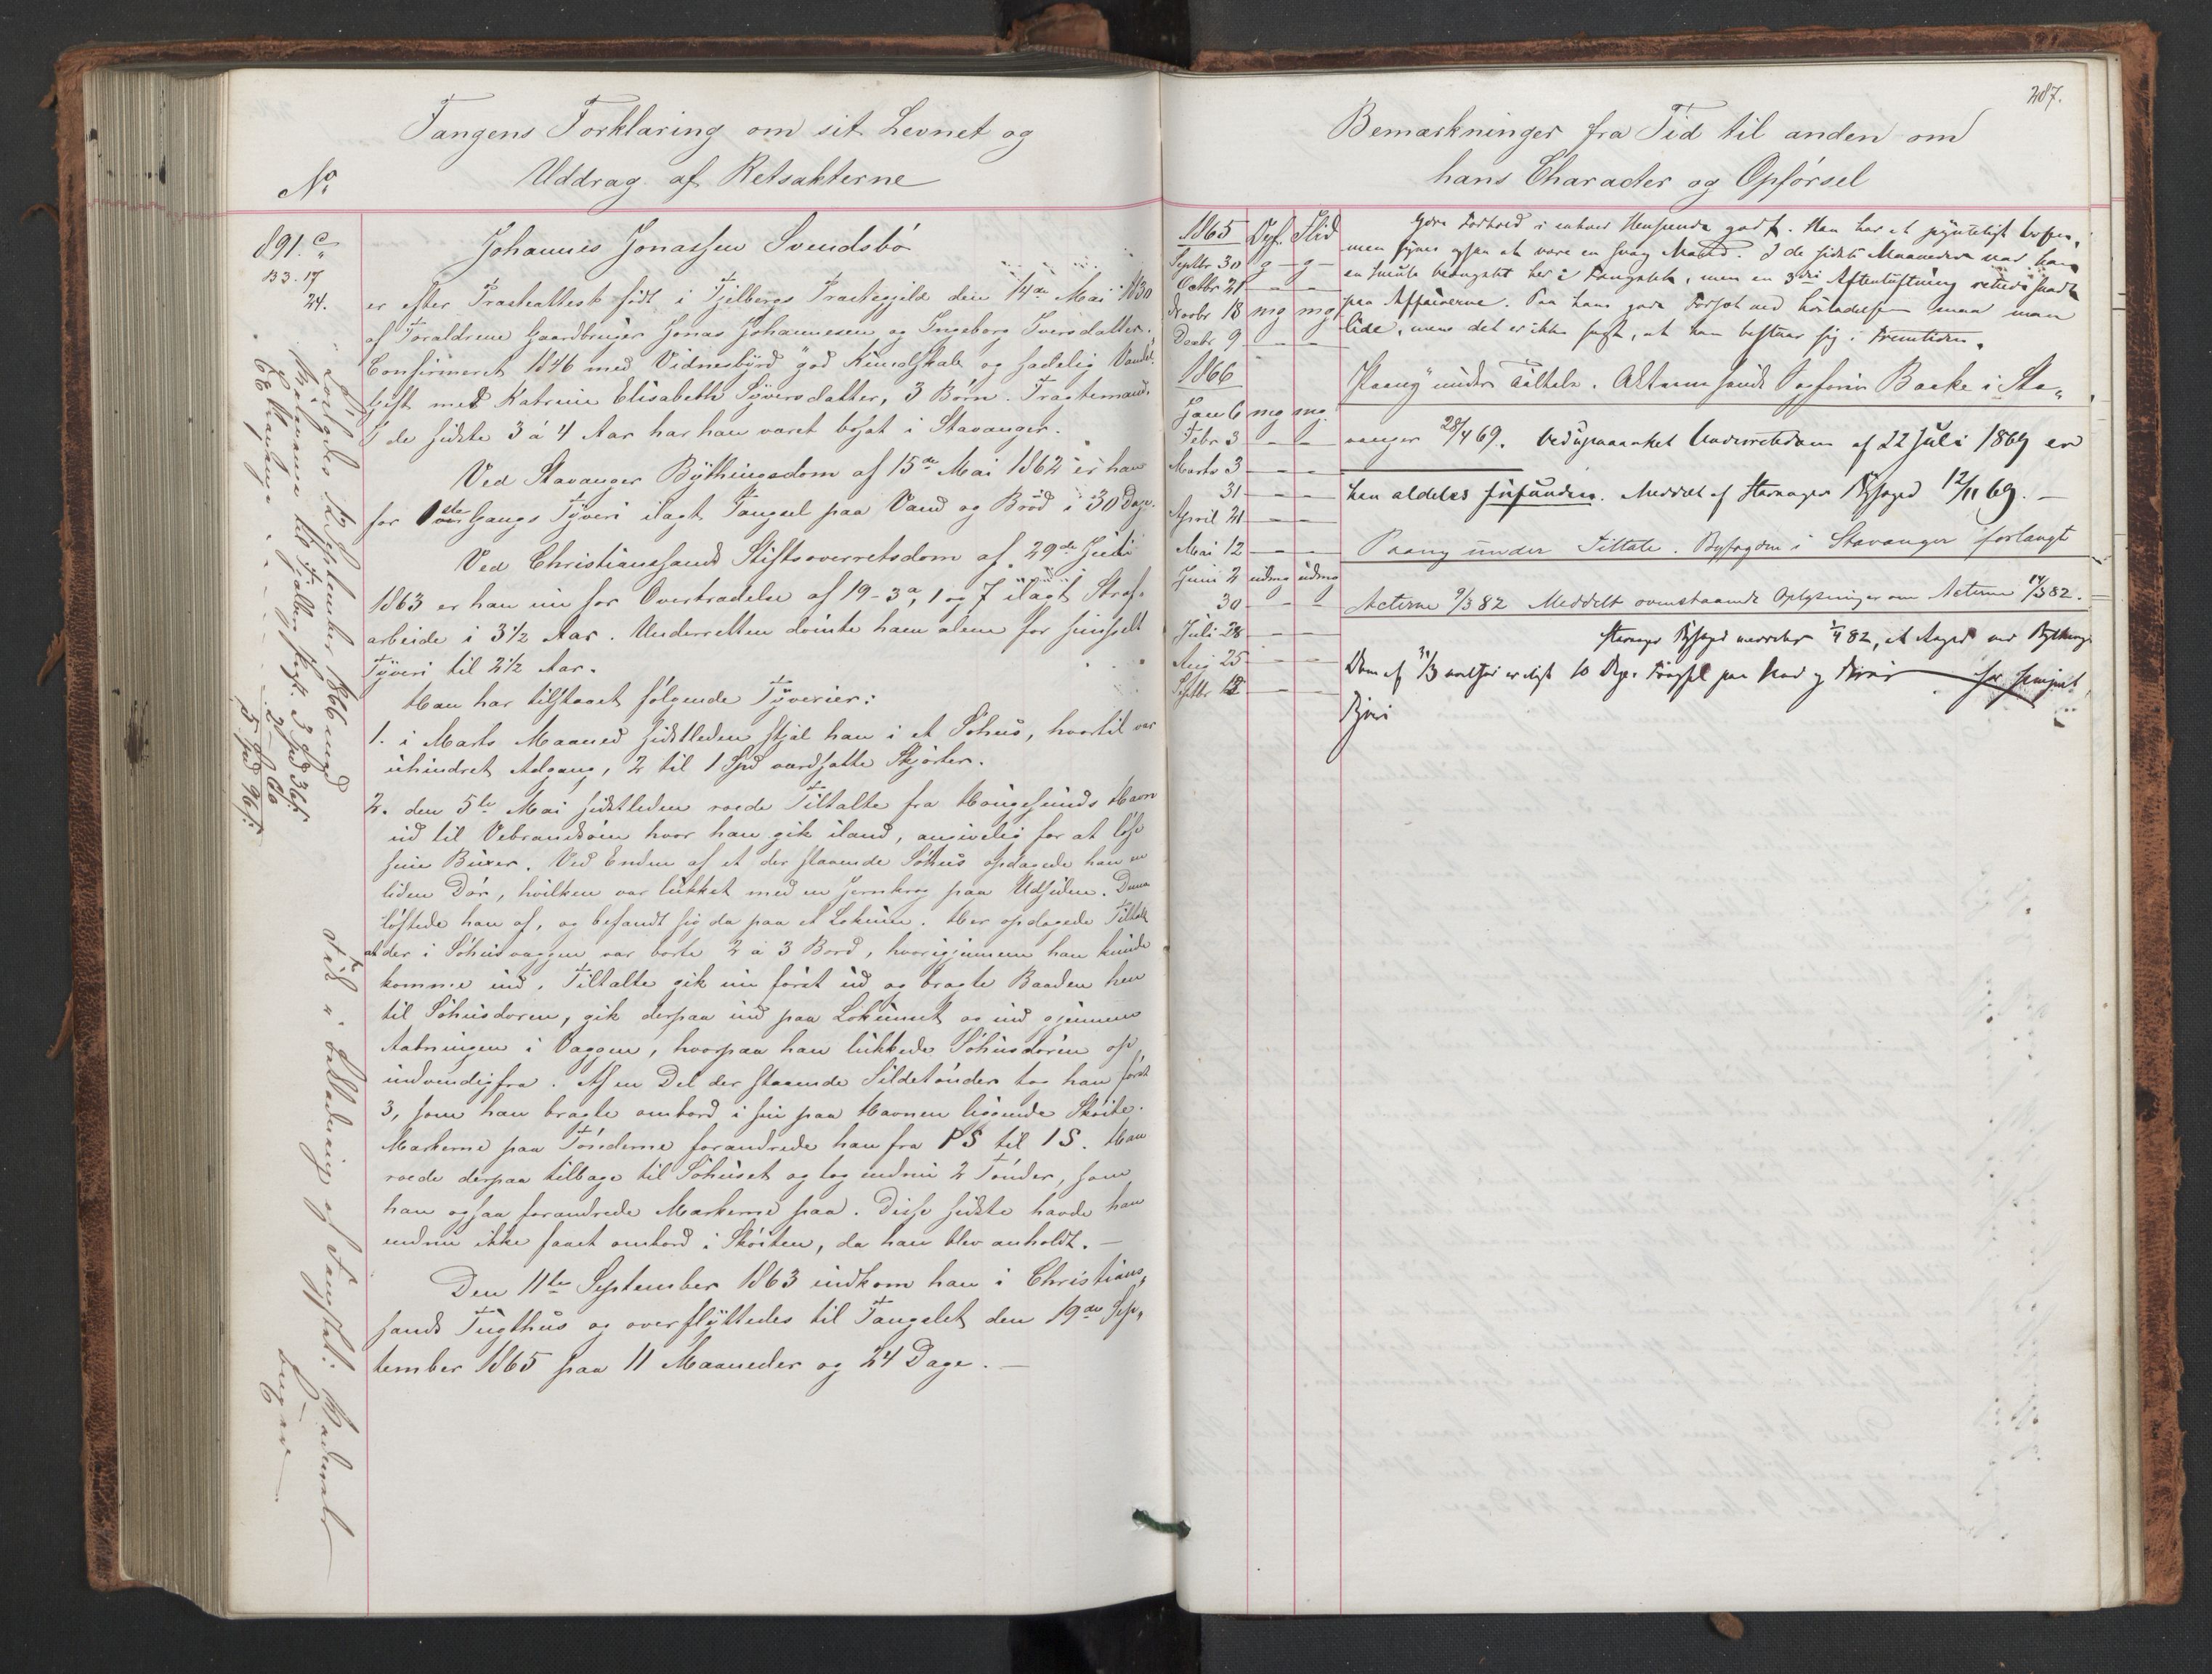 Fangens Forklaring om sit Levnet og
Uddrag af Retsakterne
No
891. c
B3. 17
24.
Johannes Jonassen Svendsbö
er efter Præsteattest född i Fjelbergs Præstegjeld den 14de Mai 1830
af Forældrene Gaardbruger Jonas Johannesen og Ingeborg Iversdatter.
Confirmeret 1846 med Vidnesbyrd "god Kundskab og sædelig Vandel".
Gift med Katrine Elisabeth Syversdatter, 3 Börn. Fragtemand.
I de sidste 3 á 4 Aar har han været bosat i Stavanger.
Ved Stavanger Bythingsdom af 15de Mai 1862 er han
for 1ste Gangs Tyveri ilagt Fængsel paa Vand og Bröd i 30 Dage.
Ved Christianssands Stiftsoverretsdom af 29de Juli
1863 er han nu for Overtrædelse af 19-3a, 1 og 7 ilagt Straf-
arbeide i 3½ Aar. Underretten dömte ham alene for simpelt
Tyveri til 2½ Aar.
Han har tilstaaet fölgende Tyverier:
1. i Marts Maaned sidstleden stjal han i et Söhus, hvortil var
uhindret Adgang, 2 til 1 Spd værdsatte Skjörter.
2. den 5te Mai sidstleden roede Tiltalte fra Haugesunds Havn
ud til Vebrandsöen hvor han gik iland, angivelig for at löse
sine Buxer. Ved Enden af et der staaende Söhus opdagede han en
liden Dör, hvilken var lukket med en Jernkrog paa Udsiden. Denne
löftede han af, og befandt sig da paa et Lokum. Her opdagede Tiltalte
at der i Söhusvæggen var borte 2 á 3 Bord, hvorigjennem han kunde
komme ind. Tiltalte gik nu först ud og bragte Baaden hen
til Söhusdoren, gik derpaa ind paa Lokummet og ind gjennem
Aabningen i Væggen, hvorpaa han lukkede Söhusdören op
indvendigfra. Af en Del der staaende Sildetönder tog han först
3, som han bragte ombord i sin paa Havnen liggende Sköite.
Mærkerne paa Tönderne forandrede han fra PS til IS. Han
roede derpaa tilbage til Söhuset og tog endnu 2 Tönder, som
han ogsaa forandrede Mærkerne paa. Disse sidste havde han
endnu ikke faaet ombord i Sköiten, da han blev anholdt. —
Den 11te September 1863 indkom han i Christians„
sands Tugthus og overflyttedes til Fængslet den 19de Sep„
tember 1865 paa 11 Maaneder og 24 Dage. —
Löslades 12 September 1866 med
til Fjelberg 3 Spd 36 s
2 - 60
5 Spd 96 s
Fik i
287.
Bemærkninger fra Tid til anden om
hans Character og Opförsel
1865 Opf. Flid
Septbr 30 g g
Octbr 21 — —
Novbr 18 mg mg
Decbr 9 — —
1866
Jan 6 mg mg
Febr 3 — —
Marts 3 — —
31 — —
April 21 — —
Mai 12 — —
Juni 2 udmg udmg
30 — —
Juli 28 — —
Aug 25 — —
Septbr 12 — —
Forhold i enhver Henseende godt. Han har et
men synes ogsaa at være en svag Mand. I de sidste Maaneder var han
en Smule betænkt her i Fængslet, men en 3die
paa Affairerne. Paa hans gode Forsæt ved Lösladelsen maa man
lide, mens det er ikke sagt, at han bestaar sig i Fremtiden.
Paany under Tiltale. Akterne sendt Bagforer Bakke i Sta„
vanger 28/4 69. Ved upaaanket Underretsdom af 22 Juli 1869 er
han aldeles frifunden. Meddelt af Stavanger Byfoged 12/11 69. —
Paany under Tiltale. Byfogden i Stavanger forlangt
Acterne 9/3 82 Meddelt ovenstaaende Oplysninger om Acterne 14/3 82.
Stavanger Byfoged meddeler 1/4 82, at Angjæld. ved Bythings-
Dom af 31/3 er ilagt 10 Dages Fængsel paa Vand og Bröd for simpelt
Tyveri